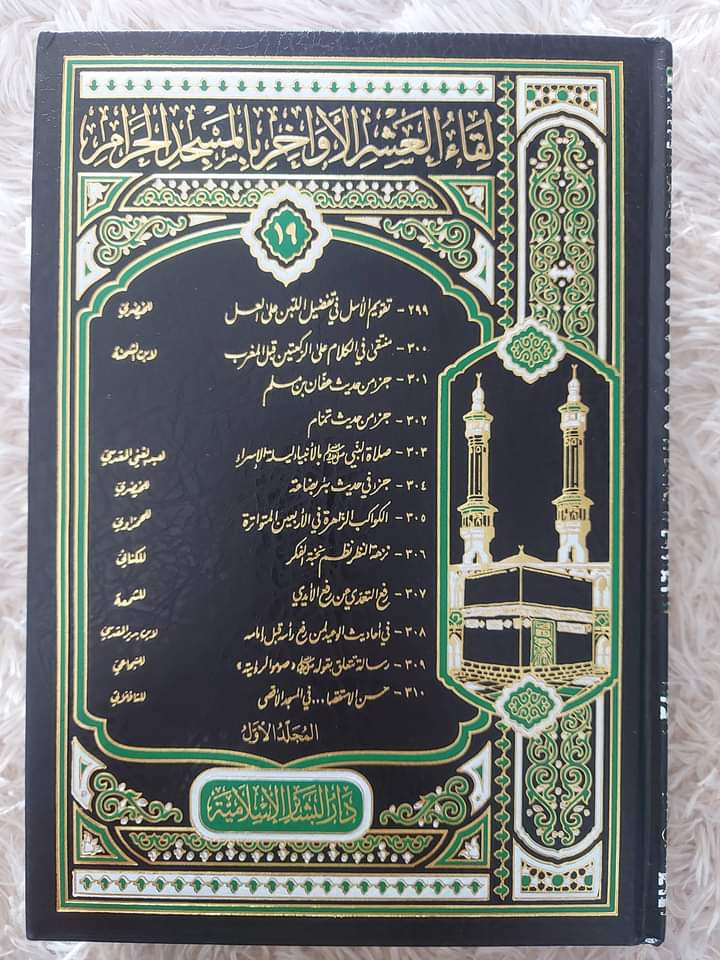 لقاء العشر الأواخر بالمسجد الحرام
١٩
٢٩٩ - تقويم الأسل في تفضيل اللبن على العسل للخيضري
٣٠٠ - منتقى في الكلام على الركعتين قبل المغرب لابن الشحنة
٣٠١ - جزء من حديث عفان بن مسلم
٣٠٢ - جزء من حديث تمتام
٣٠٣ - صلاة النبي ﷺ بالأنبياء ليلة الإسراء لعبد الغني المقدسي
٣٠٤ - جزء في حديث بئر بضاعة للخيضري
٣٠٥ - الكواكب الزاهرة في الأربعين المتواترة للحمزاوي
٣٠٦ - نزهة النظر نظم نخبة الفكر للكناني
٣٠٧ - رفع التعدي عن رفع الأيدي للشمعة
٣٠٨ - في أحاديث الوعيد لمن رفع رأسه قبل إمامه لابن بدر المقدسي
٣٠٩ - رسالة تتعلق بقوله ﷺ «صوموا لرؤيته»
٣١٠ - حسن الاستقصا... في المسجد الأقصى للتافلاتي
المجلد الأول
دار البشائر الإسلامية